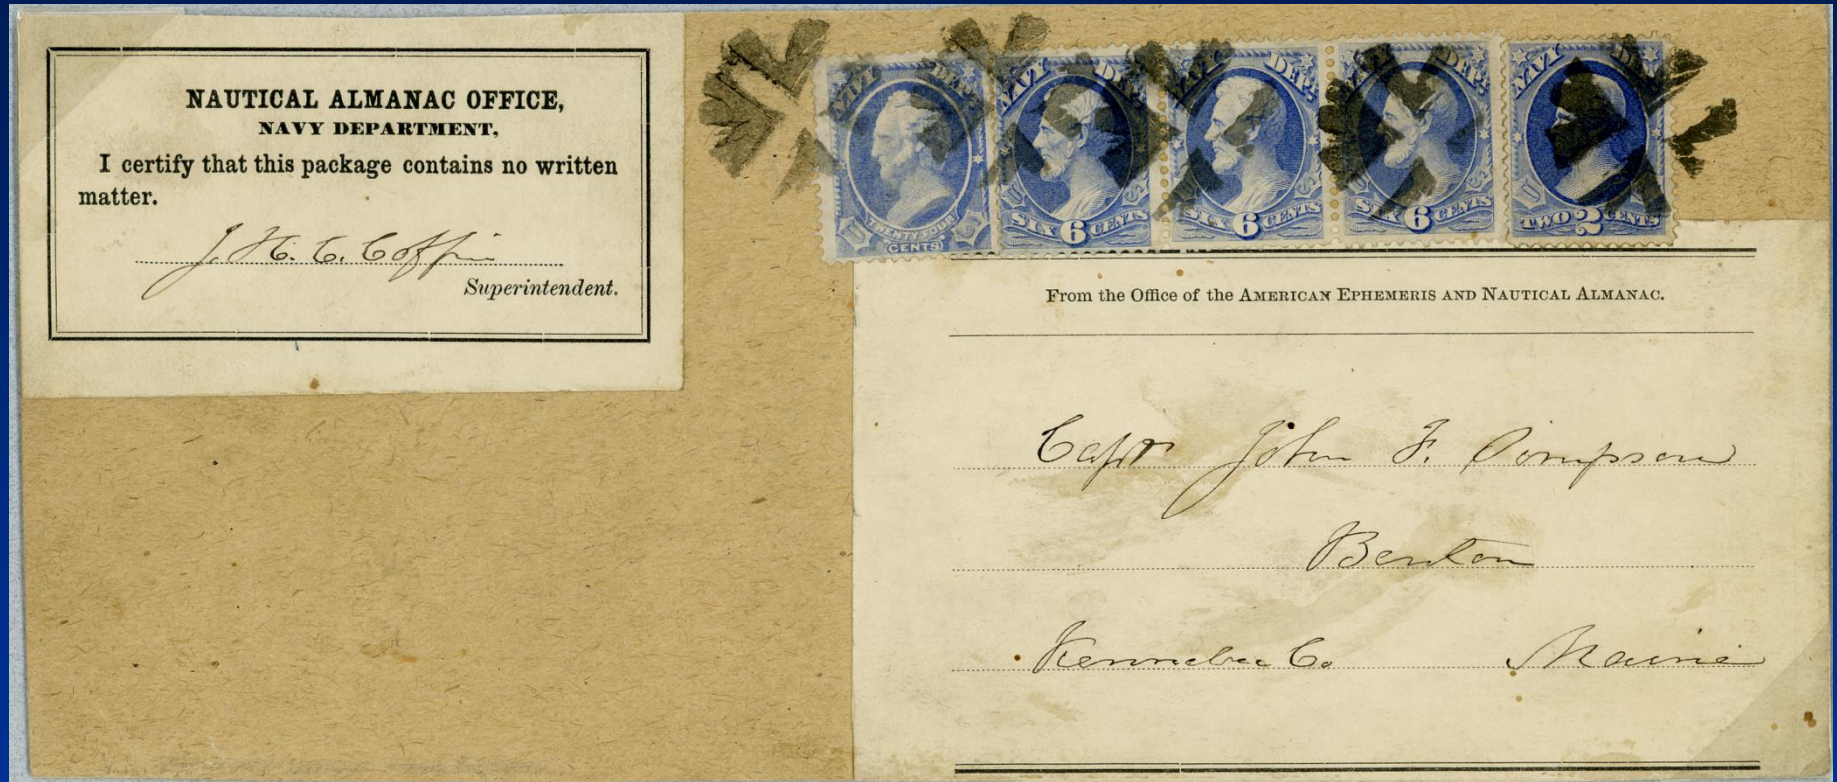 NAUTICAL ALMANAC OFFICE,
NAVY DEPARTMENT,
I certify that this package contains no written
matter.
J. H. C. Coffin
Superintendent.
NAVY DEPT. NAVY DEPT. NAVY DEPT. NAVY DEPT. NAVY DEPT.
TWENTY FOUR CENTS
SIX 6 CENTS SIX 6 CENTS SIX 6 CENTS TWO 2 CENTS
From the Office of the AMERICAN EPHEMERIS AND NAUTICAL ALMANAC.
Capt John F. Simpson
Benton
Kennebec Co Maine